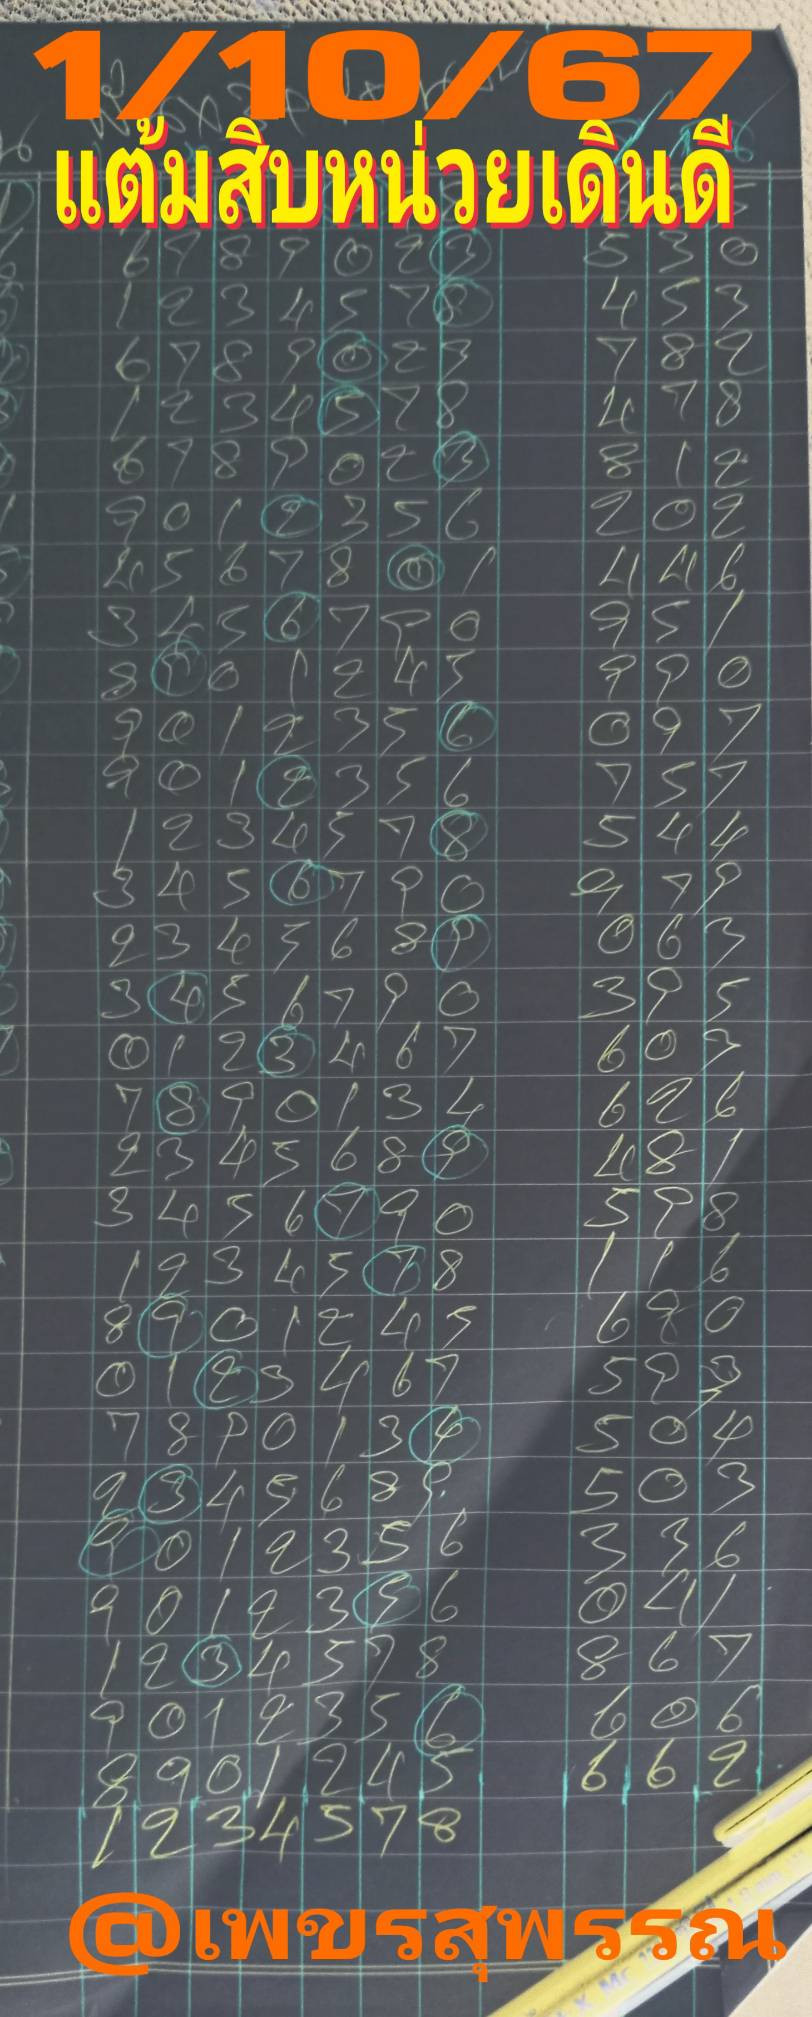 1/10/67
แต้มสิบหน่วยเดินดี
6 7 8 9 0 2 3 5 3 0
1 2 3 4 5 7 8 4 5 3
6 7 8 9 0 2 3 7 8 2
1 2 3 4 5 7 8 4 7 8
6 7 8 9 0 2 3 8 1 2
9 0 1 2 3 5 6 2 0 2
4 5 6 7 8 0 1 4 4 6
3 4 5 6 7 9 0 9 5 1
8 9 0 1 2 4 5 9 9 0
9 0 1 2 3 5 6 0 9 7
9 0 1 2 3 5 6 7 5 7
1 2 3 4 5 7 8 5 4 4
3 4 5 6 7 9 0 9 7 9
2 3 4 5 6 8 9 0 6 3
3 4 5 6 7 9 0 3 9 5
0 1 2 3 4 6 7 6 0 3
7 8 9 0 1 3 4 6 2 6
2 3 4 5 6 8 9 4 8 1
3 4 5 6 7 9 0 5 9 8
1 2 3 4 5 7 8 1 1 6
8 9 0 1 2 4 5 6 8 0
0 1 2 3 4 6 7 5 9 3
7 8 9 0 1 3 4 5 0 4
2 3 4 5 6 8 9 5 0 3
9 0 1 2 3 5 6 3 3 6
9 0 1 2 3 5 6 0 4 1
1 2 3 4 5 7 8 8 6 7
9 0 1 2 3 5 6 6 0 6
8 9 0 1 2 4 5 6 6 2
1 2 3 4 5 7 8
@เพชรสุพรรณ